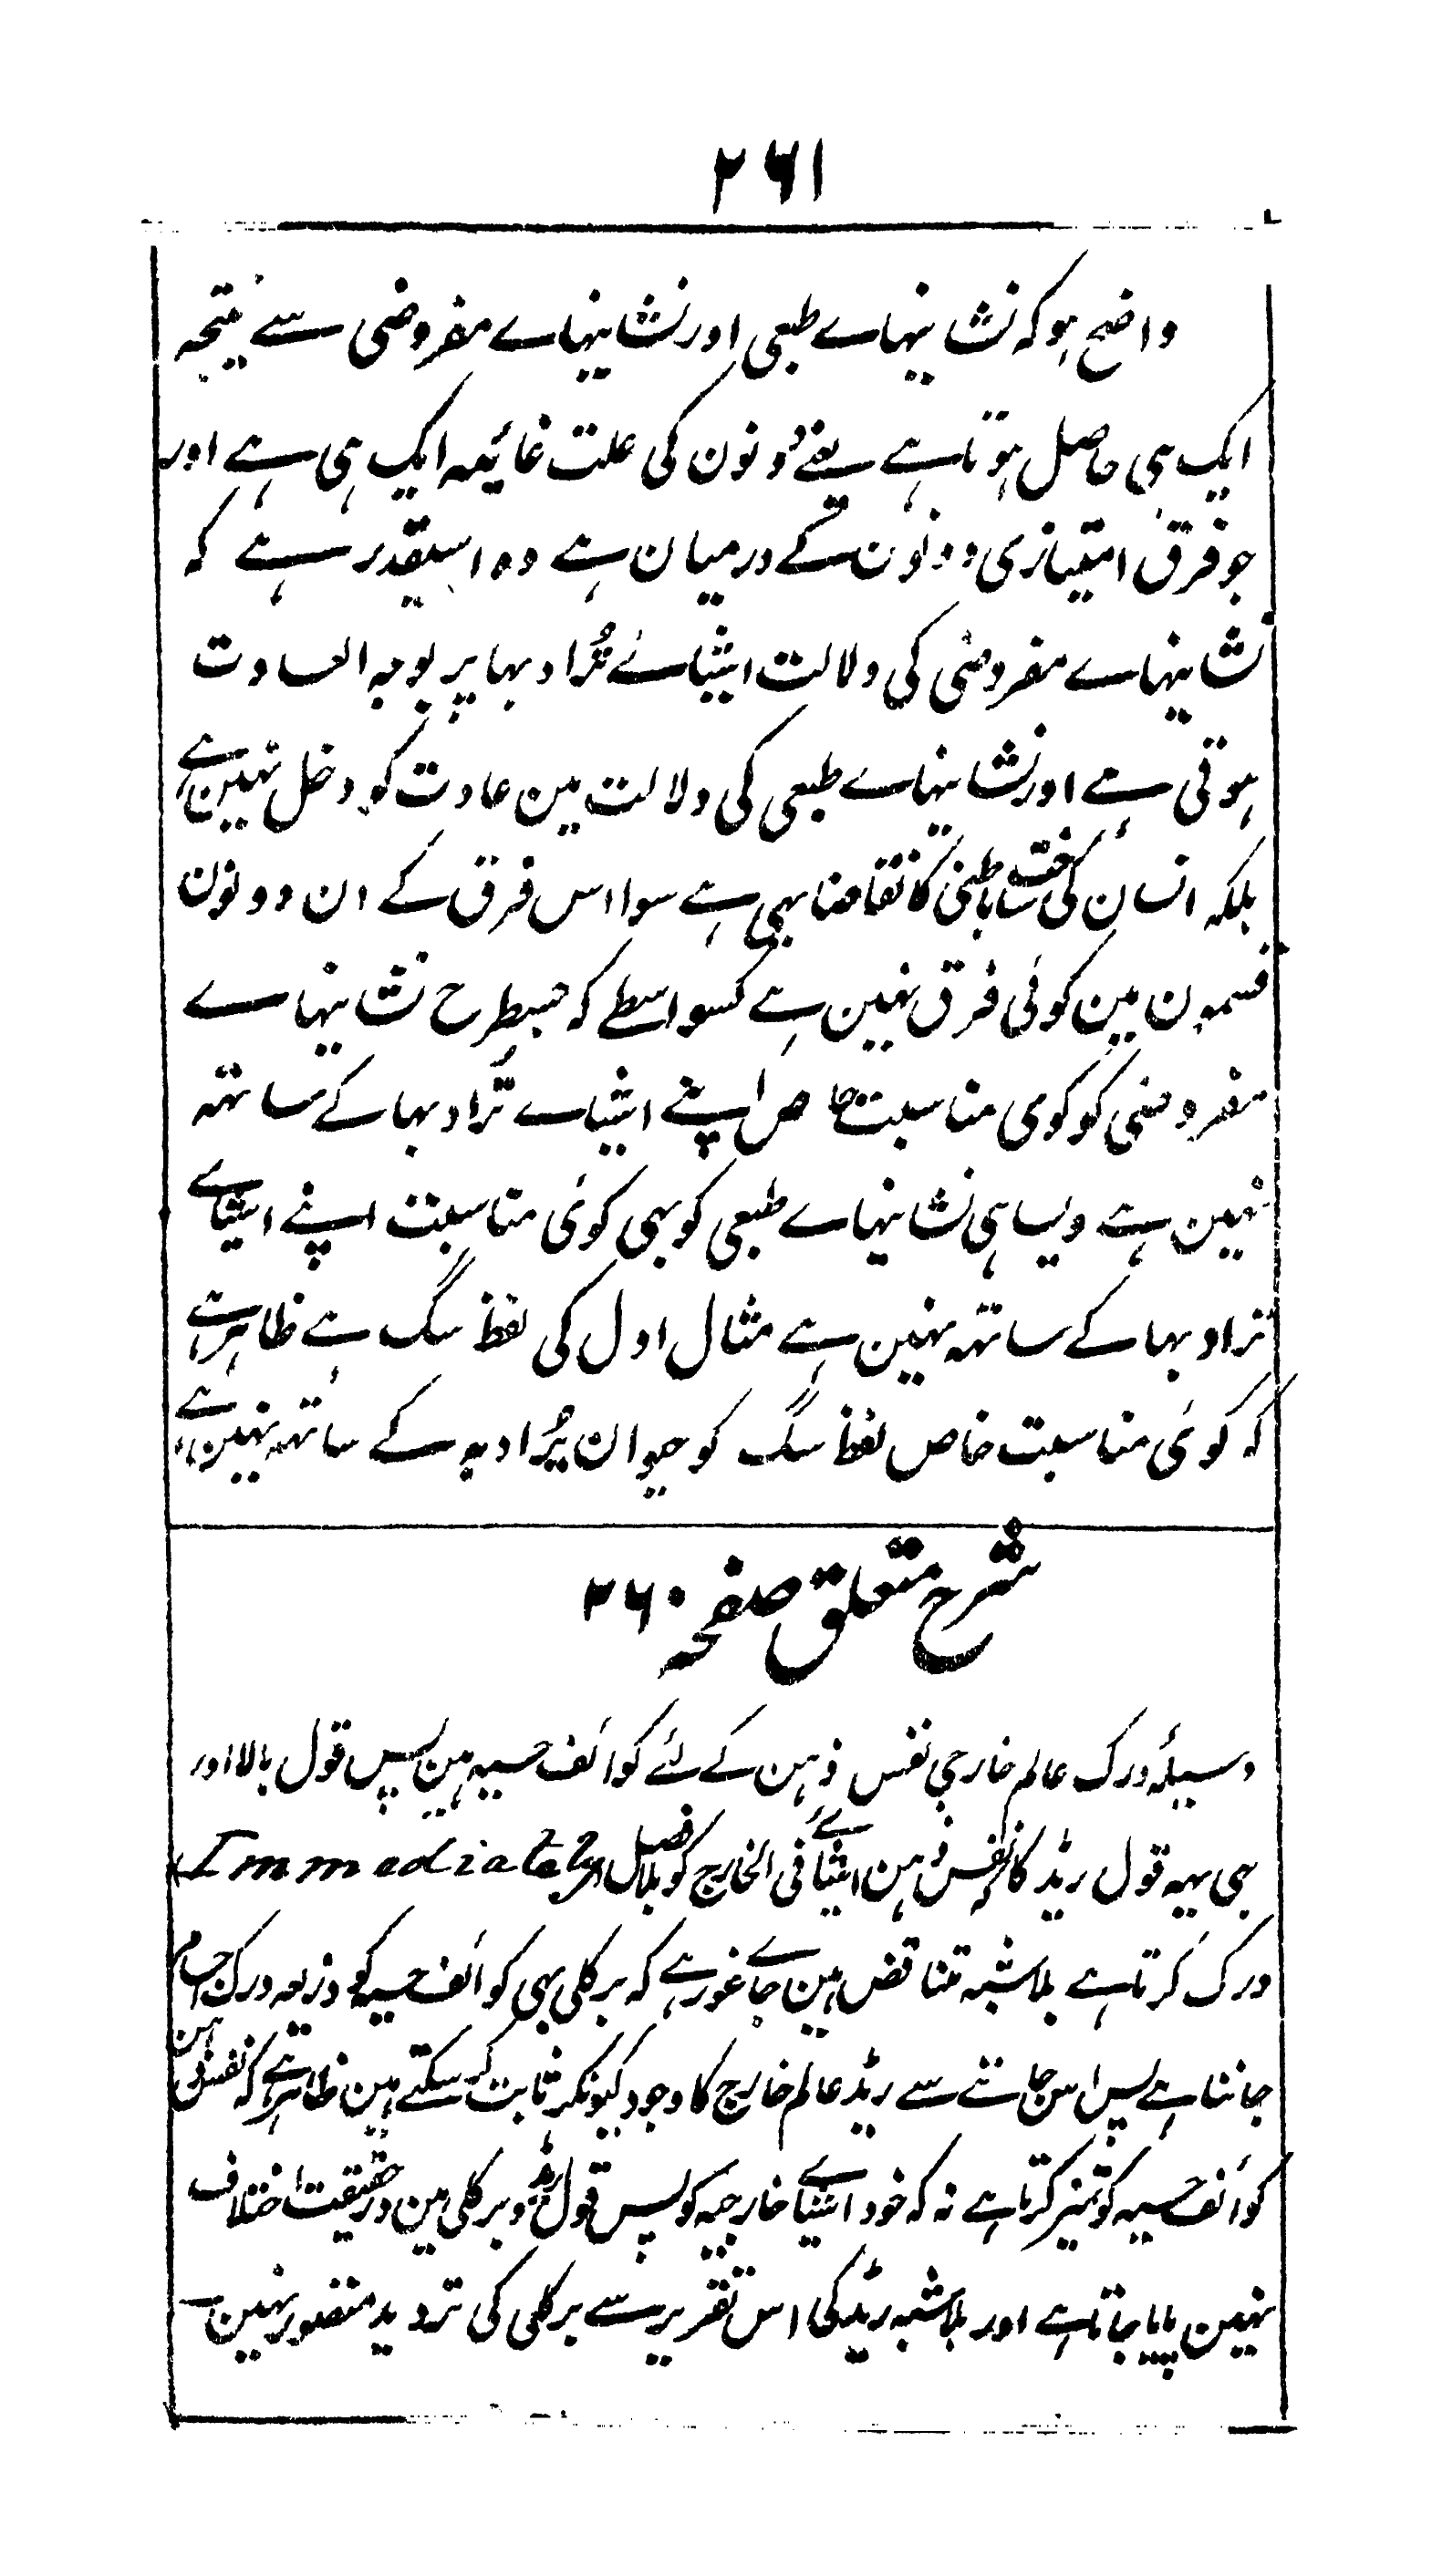 ۲۶۱
واضح ہو کہ نشانیہاے طبعی اور نشانیہاے مفروضی سے نتیجہ
ایک ہی حاصل ہوتا ہے یعنے دونون کی علت غائیہ ایک ہی ہے اور
جو فرق امتیازی دونون کے درمیان ہے وہ اسیقدر ہے کہ
نشانیہاے مفروضی کی دلالت اشیاے مُراد بہا پر بوجہ العادت
ہوتی ہے اور نشانیہاے طبعی کی دلالت مین عادت کو دخل نہین ہے
بلکہ انسان کی ساخت باطنی کا تقاضا یہی ہے سوا اس فرق کے ان دونون
قسمون مین کوئی فرق نہین ہے کسواسطے کہ جسطرح نشانیہاے
مفروضی کو کوی مناسبت خاص اپنے اشیاے مُراد بہا کے ساتہہ
نہین ہے ویسا ہی نشانیہاے طبعی کو بہی کوئی مناسبت اپنے اشیاے
مراد بہا کے ساتہہ نہین ہے مثال اول کی لفظ سگ ہے ظاہر ہے
کہ کوئی مناسبت خاص لفظ سگ کو حیوان مُراد بہ کے ساتہہ نہین ہے
شرح متعلق صفحہ ۲۶۰
وسیلۂ درک عالم خارجی نفس ذہن کے لئے کوائف حسیہ ہین پس قول بالا اور
بہی یہہ قول ریڈ کا کہ نفس ذہن اشیاے فی الخارج کو بلا فصل (Immediately)
درک کرتا ہے بلاشبہ متناقض ہین جاے غور ہے کہ برکلی بہی کوائف حسیہ کو ذریعہ درک اجسام
جانتا ہے پس اس جاننے سے ریڈ عالم خارج کا وجود کیونکر ثابت کر سکتے ہین ظاہر ہے کہ نفس ذہن
کوائف حسیہ کو تمیز کرتا ہے نہ کہ خود اشیاے خارجیہ کو پس قول ریڈ و برکلی مین درحقیقت اختلاف
نہین پایا جاتا ہے اور بلاشبہ ریڈ کی اس تقریر سے برکلی کی تردید متصور نہین